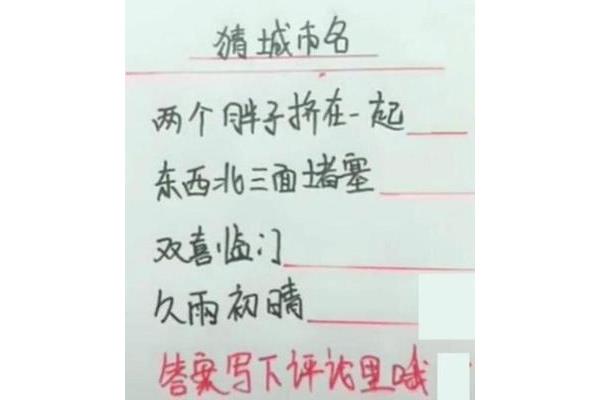 猜城市名
两个胖子挤在一起
东西北三面堵塞
双喜临门
久雨初晴
答案写下评论里哦